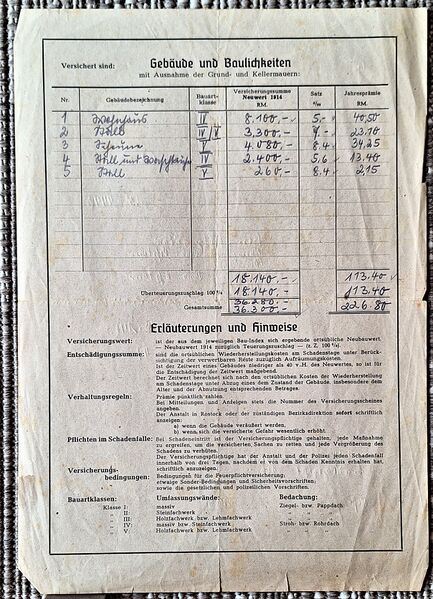 Versichert sind: Gebäude und Baulichkeiten
mit Ausnahme der Grund- und Kellermauern:
Nr. Gebäudebezeichnung Bauart-klasse Versicherungssumme Neuwert 1914 RM. Satz ‰ Jahresprämie RM.
1 Wohnhaus IV 8.100,- 5,- 40,50
2 Stall IV/V 3,300.- 7.- 23.10
3 Scheune V 4.080,- 8.4 34,25
4 Stall und IV 2.400.- 5,6 13.40
5 Stall V 260.- 8.4 2,15
18.140,- 113.40
Überteuerungszuschlag 100% 18.140,- 113.40
36.280.-
Gesamtsumme 36.300.- 226.80
Erläuterungen und Hinweise
Versicherungswert: ist der aus dem jeweiligen Bau-Index sich ergebende ortsübliche Neubauwert.
— Neubauwert 1914 zuzüglich Teuerungszuschlag — (z. Z. 100%)
Entschädigungssumme: sind die ortsüblichen Wiederherstellungskosten am Schadenstage unter Berück-
sichtigung der verwertbaren Reste zuzüglich Aufräumungskosten.
Ist der Zeitwert eines Gebäudes niedriger als 40 v.H. des Neuwertes, so ist für
die Entschädigung der Zeitwert maßgebend.
Der Zeitwert berechnet sich nach den ortsüblichen Kosten der Wiederherstellung
am Schadenstage unter Abzug eines dem Zustand der Gebäude, insbesondere dem
Alter und der Abnutzung entsprechenden Betrages.
Verhaltungsregeln: Prämie pünktlich zahlen.
Bei Mitteilungen und Anzeigen stets die Nummer des Versicherungsscheines
angeben.
Der Anstalt in Rostock oder der zuständigen Bezirksdirektion sofort schriftlich
anzeigen:
a) wenn die Gebäude veräußert werden,
b) wenn sich die versicherte Gefahr wesentlich erhöht.
Pflichten im Schadenfalle: Bei Schadeneintritt ist der Versicherungspflichtige gehalten, jede Maßnahme
zu ergreifen, um die versicherten Sachen zu retten und jede Vergrößerung des
Schadens zu verhüten.
Der Versicherungspflichtige hat der Anstalt und der Polizei jeden Schadenfall
innerhalb von drei Tagen, nachdem er von dem Schaden Kenntnis erhalten hat,
schriftlich anzuzeigen.
Versicherungs-bedingungen: Bedingungen für die Feuerpflichtversicherung
etwaige Sonder-Bedingungen und Sicherheitsvorschriften,
sowie die gesetzlichen und polizeilichen Vorschriften.
Bauartklassen: Umfassungswände: Bedachung:
Klasse I: massiv Ziegel- bzw. Pappdach
" II: Steinfachwerk " " "
" III: Holzfachwerk bzw. Lehmfachwerk " " "
" IV: massiv bzw. Steinfachwerk Stroh- bzw. Rohrdach
" V: Holzfachwerk bzw. Lehmfachwerk " " "